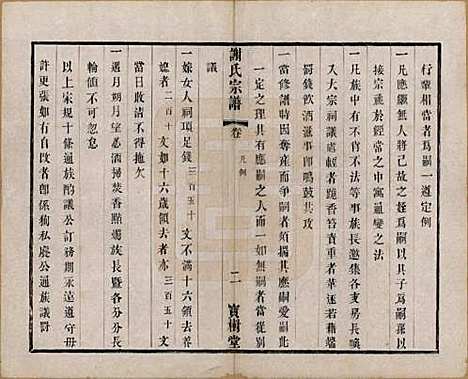 行輩相當者為嗣一遵定例
一凡應繼無人將己故之姪為嗣以其子為嗣孫以
接宗祧於經常之中寓通變之法
一凡族中有不肖不法等事族長邀集各支房長喚
入大宗祠議處輕者跪香笞責重者革逐若藉端
罰錢飲酒滋事卽鳴鼓共攻
一當修譜時因奪產而爭嗣者須照應嗣愛嗣二者
一定之理具有應嗣之人而一如無嗣者當從別
謝氏宗譜
卷
凡例
二
寶樹堂
議
一嫁女人祠項足錢三百五十文不滿十六領去養
媳者二百十文如十六歲領去者三百五十文
當日收進不得拖欠
一遇月朔月望必酒掃焚香點燭族長暨各分分長
輪值不可忽怠
以上宋規十條通族酌議公訂務期永遠遵守毋
許更張如有自改者卽係徇私廢公通族議對